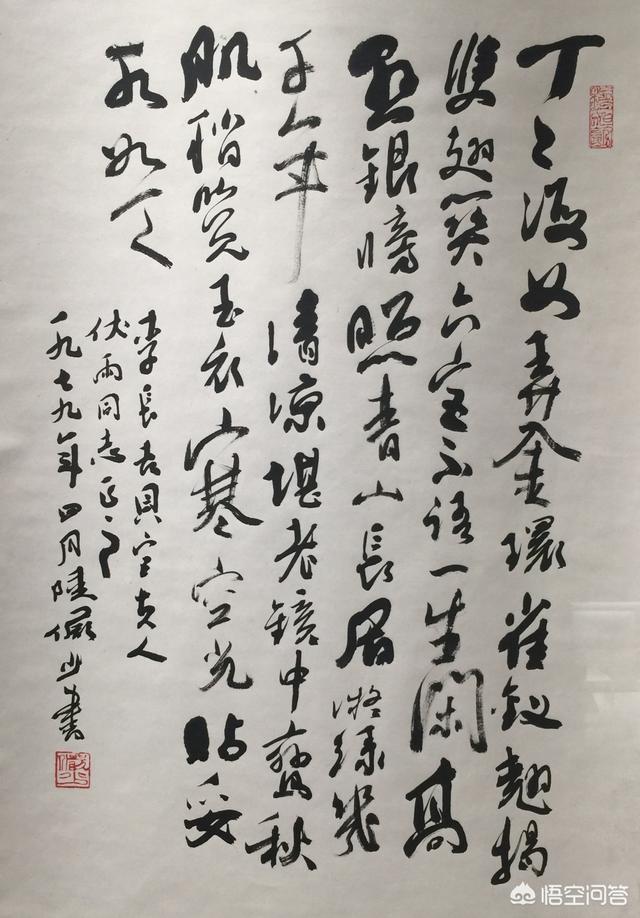 丁〻海女弄金環雀釵翹揭
雙翅関六宮不語一生閑高
懸銀牓照青山長眉凝緑幾
千年清涼堪老鏡中鸞秋
肌稍覺玉衣寒空光貼妥
水如天
李長吉貝宮夫人
伏雨同志正之
一九七九年四月陸儼少書
悟空问答